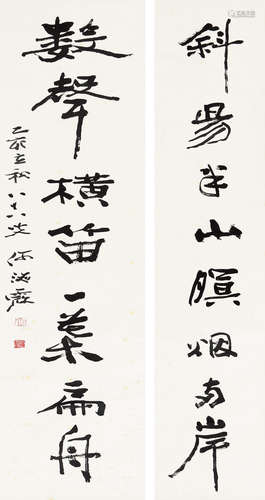 斜昜半山暝烟两岸
數聲橫笛一葉扁舟
乙亥立秋八十八叟何海霞